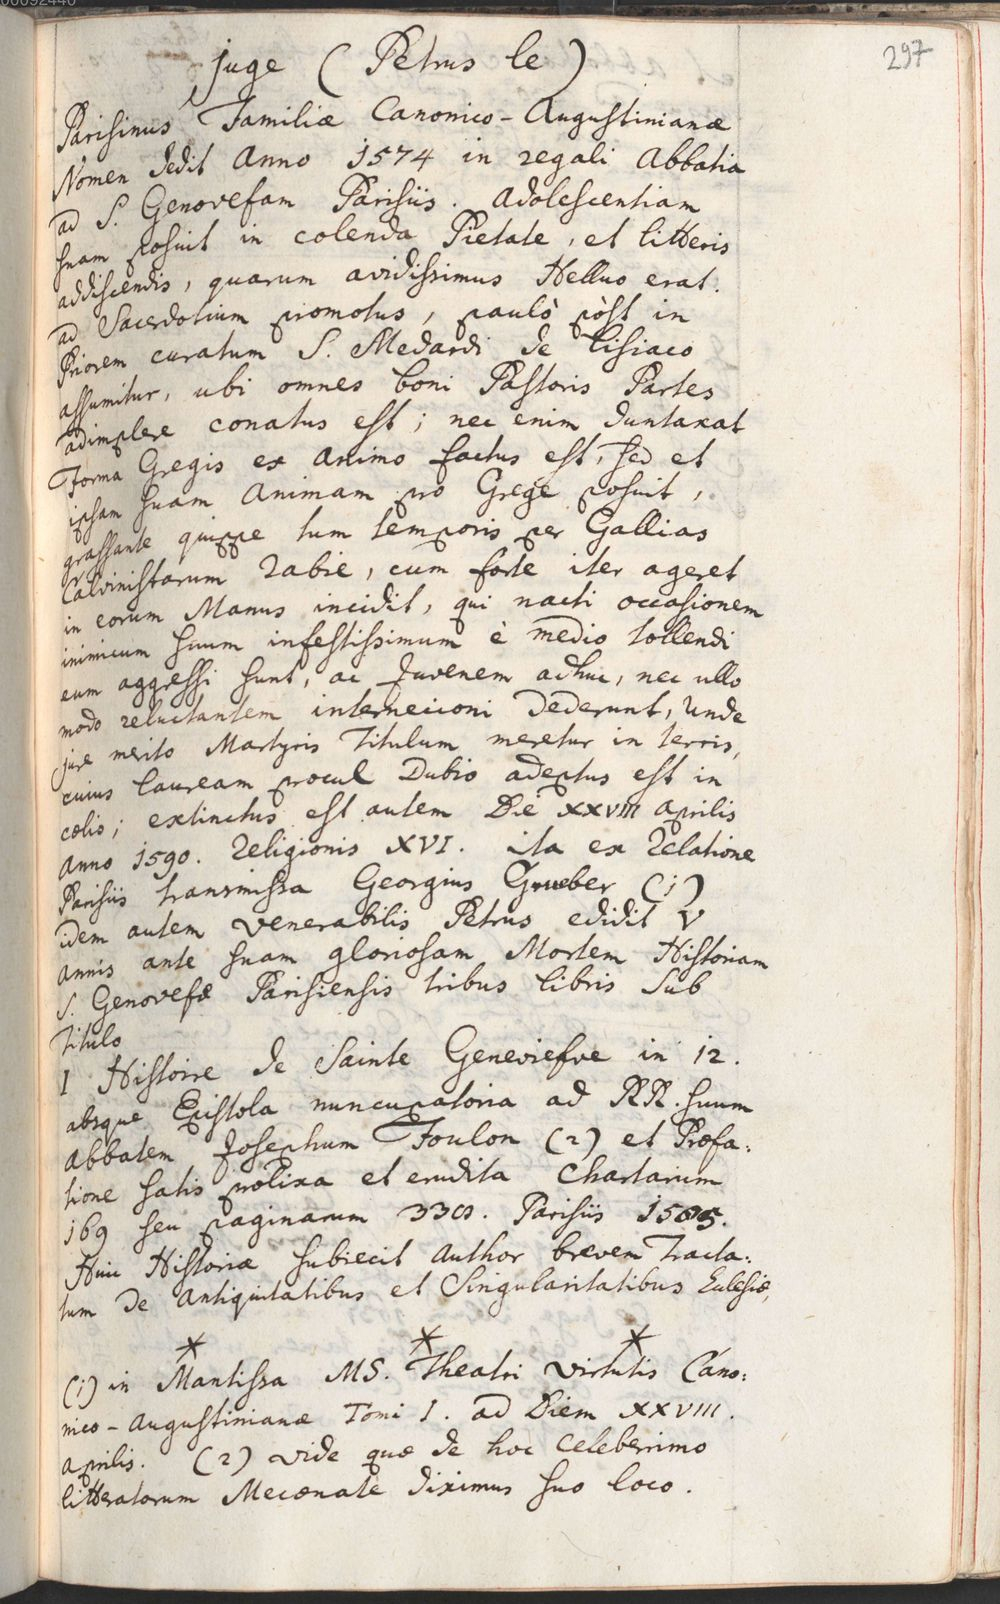 297
juge (Petrus le)
Parisinus Familiæ Canonico-Augustinianæ
Nomen dedit Anno 1574 in regali Abbatia
ad S. Genovefam Parisiis. Adolescentiam
suam posuit in colenda Pietate, et litteris
addiscendis, quarum avidissimus Helluo erat.
ad Sacerdotium promotus, paulò pòst in
Priorem curatum S. Medardi de Lisiaco
assumitur, ubi omnes boni Pastoris Partes
adimplere conatus est; nec enim duntaxat
Forma Gregis ex Animo factus est, sed et
ipsam suam Animam pro Grege posuit,
grassante quippe tum temporis per Gallias
Calvinistarum Rabie, cum forte iter ageret
in eorum Manus incidit, qui nacti occasionem
inimicum suum infestissimum è medio tollendi
eum aggressi sunt, ac Juvenem adhuc, nec ullo
modo reluctantem internecioni dederunt, Unde
jure merito Martyris Titulum meretur in terris,
cuius lauream procul Dubio adeptus est in
cœlis; extinctus est autem Die XXVIII Aprilis
Anno 1590. Religionis XVI. ita ex Relatione
Parisiis transmissa Georgius Grueber (1)
idem autem venerabilis Petrus edidit V
Annis ante suam gloriosam Mortem Historiam
S. Genovefæ Parisiensis tribus libris sub
Titulo
I Histoire de Sainte Geneviefve in 12.
absque Epistola nuncupatoria ad RR. suum
Abbatem Josephum Foulon (2) et Præfa:
tione satis prolixa et erudita Chartarum
169 seu paginarum 338. Parisiis 1585.
Huic Historiæ subiecit Author brevem Tracta:
tum de Antiquitatibus et Singularitatibus Eclesiæ,
* * *
(1) in Mantissa MS. Theatri virtutis Cano:
nico-Augustinianæ Tomi I. ad Diem XXVIII.
Aprilis. (2) vide quæ de hoc celeberrimo
litteratorum Mecœnate diximus suo loco.